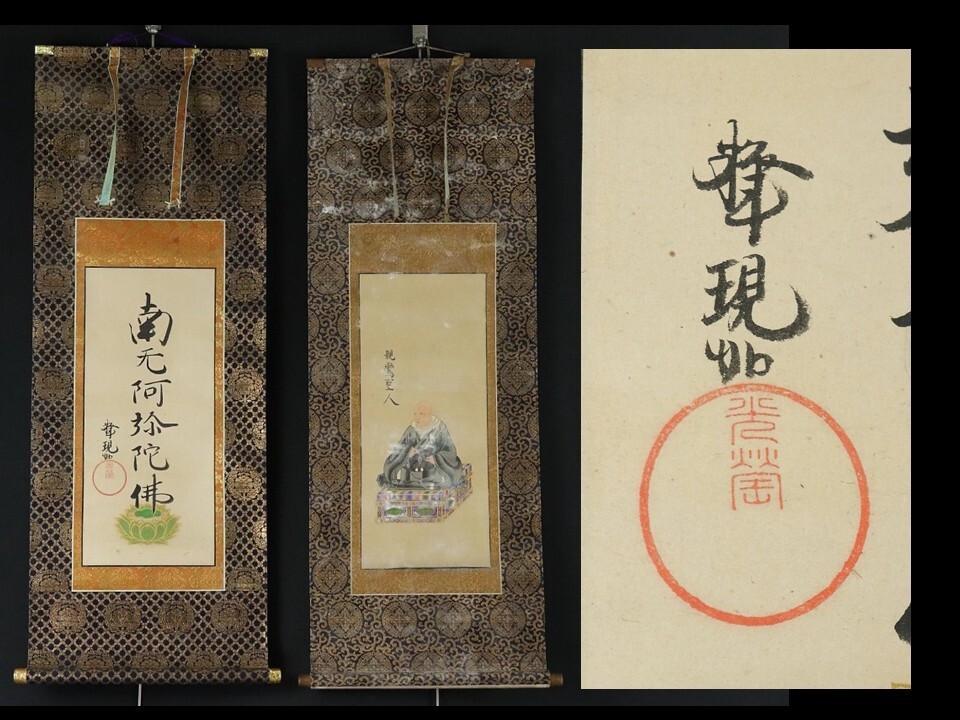 南无阿弥陀佛
釋現如
光瑩
親鸞聖人
釋現如
光瑩